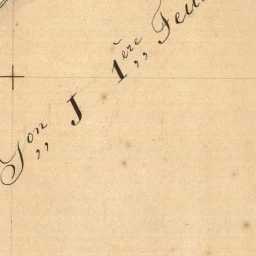 Son J 1ère Feu